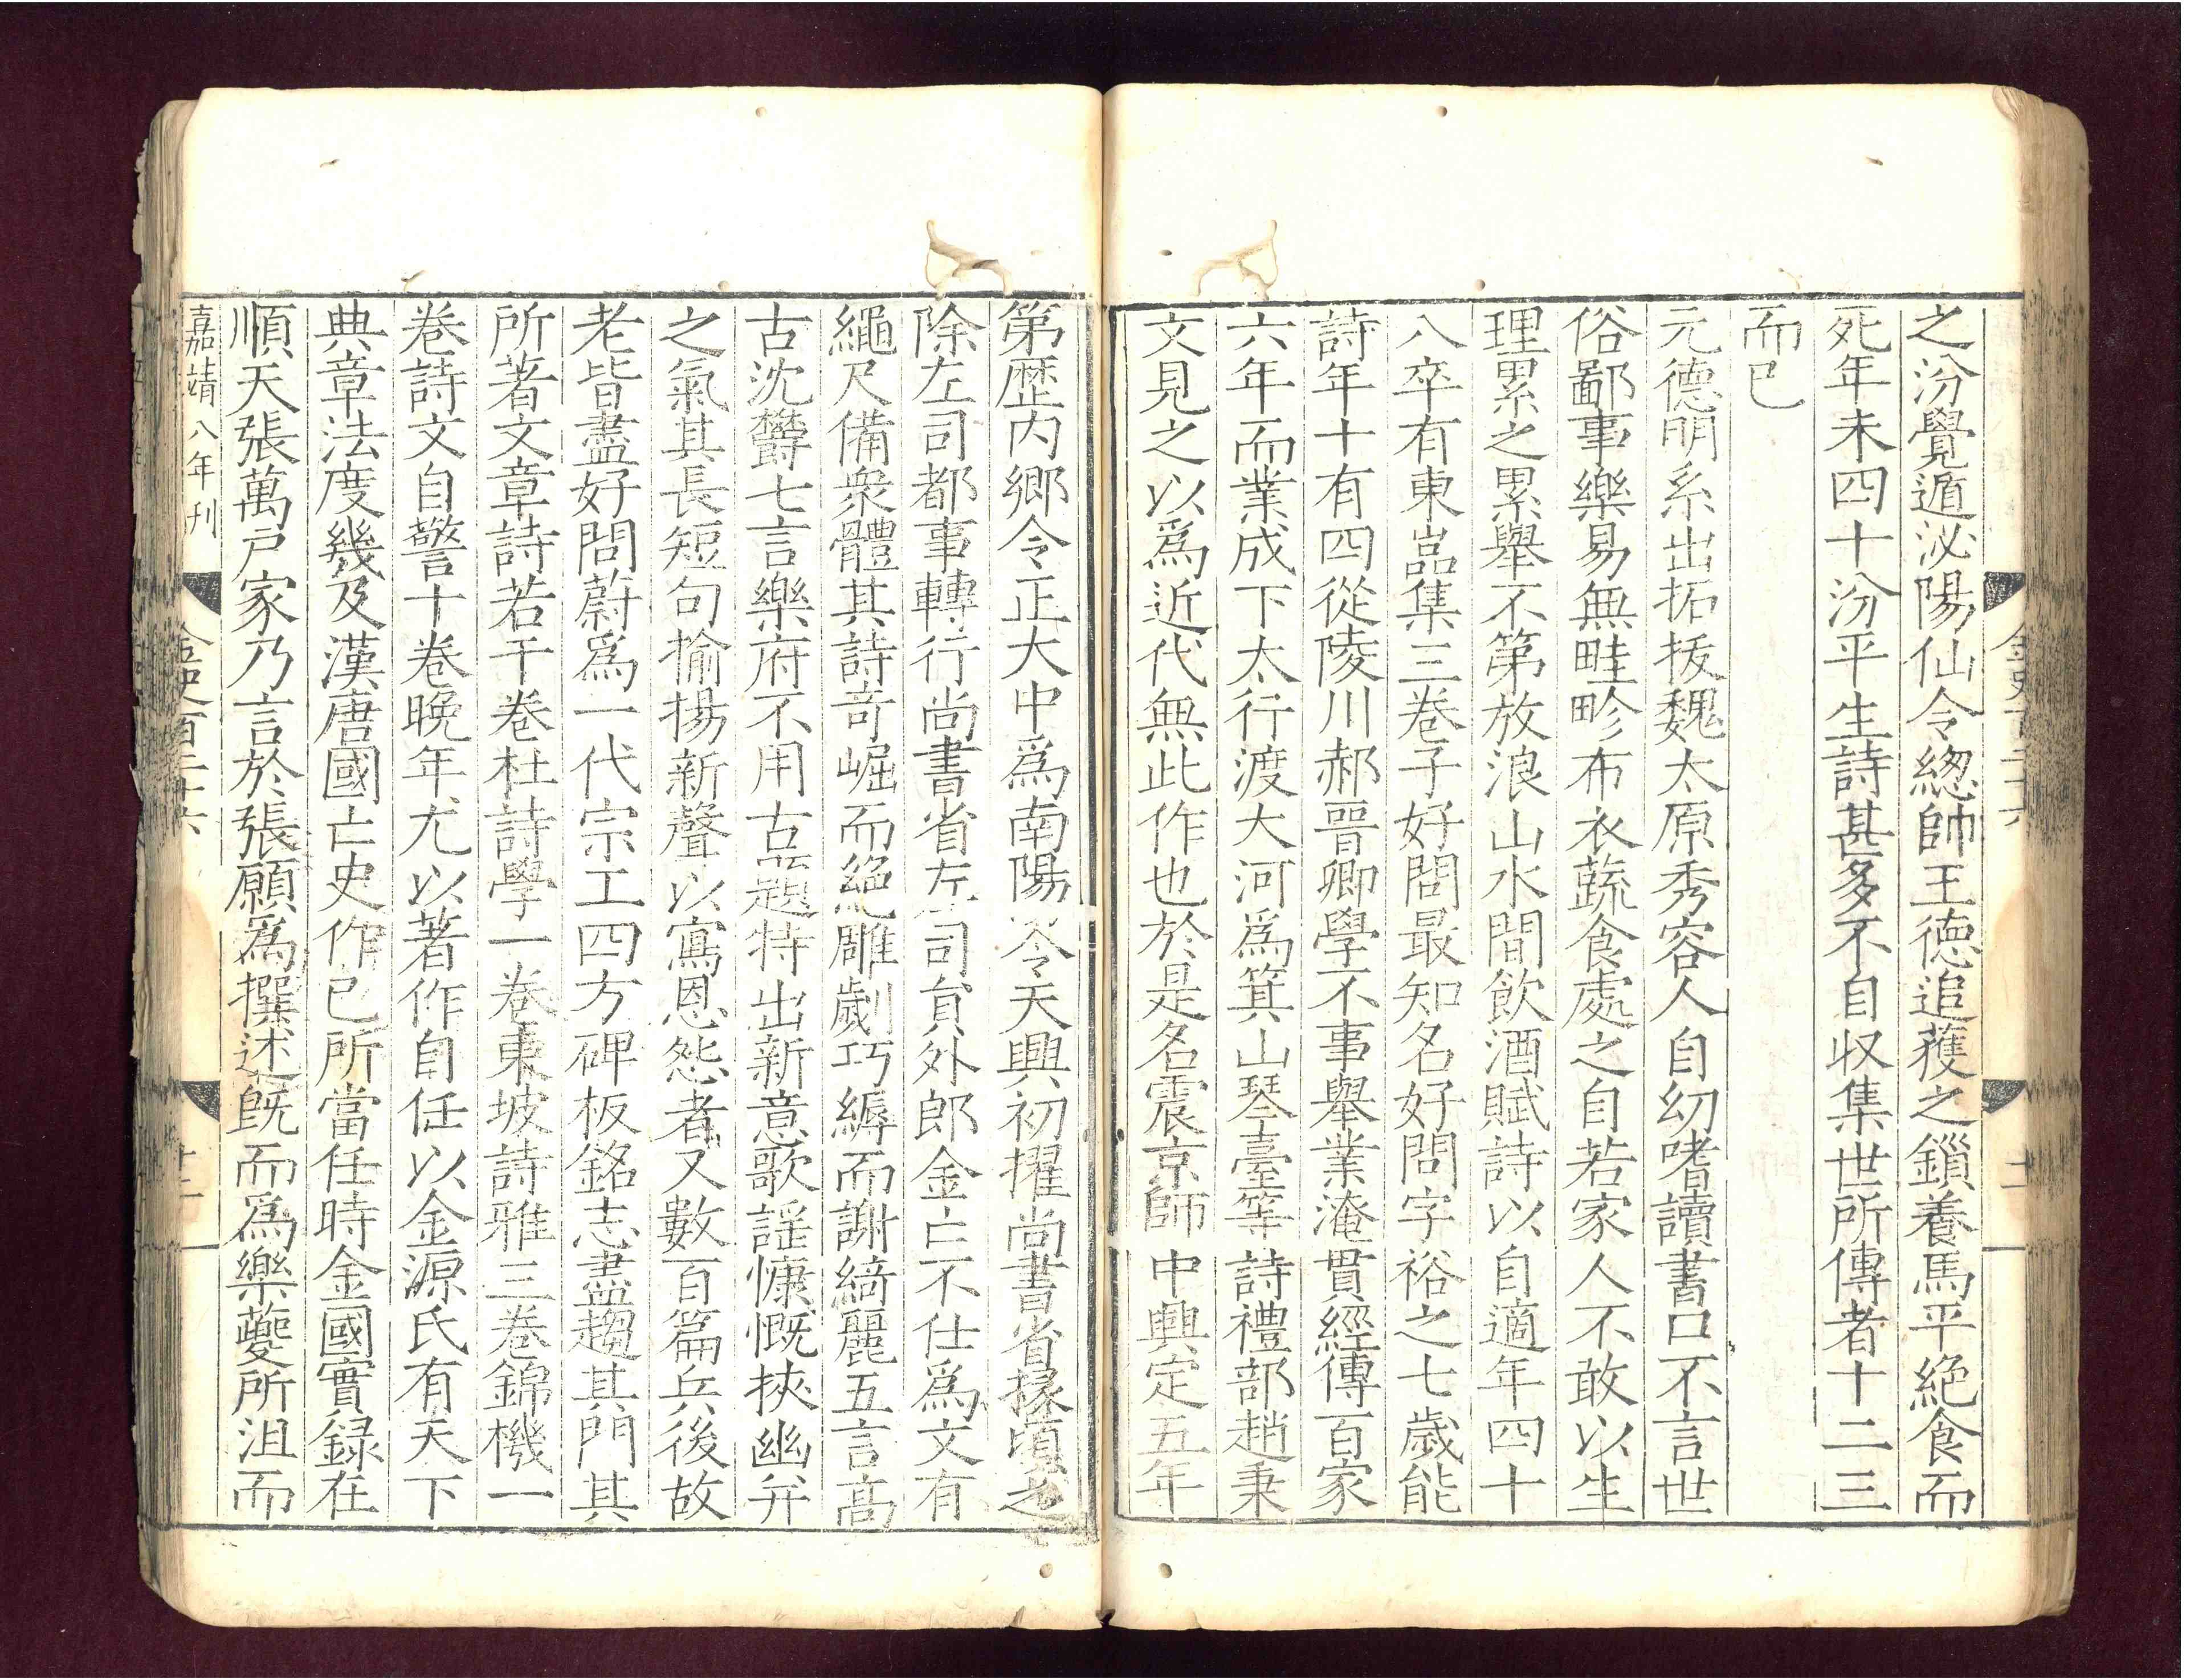 之汾覺遁泌陽仙令緫師王德追獲之鎖養馬平絶食而
死年未四十汾平生詩甚多不自収集世所傳者十二三
而已
元德明系出拓拔魏太原秀容人自幼嗜讀書口不言世
俗鄙事樂易無畦畛布衣蔬食處之自若家人不敢以生
理累之累舉不第放浪山水間飲酒賦詩以自適年四十
八卒有東嵓集三卷子好問最知名好問字裕之七歲能
詩年十有四從陵川郝晉卿學不事舉業淹貫經傳百家
六年而業成下太行渡大河爲箕山琴臺等詩禮部趙秉
文見之以爲近代無此作也於是名震京師中興定五年
金史百二十六
十一
第歴内鄉令正大中爲南陽令天興初擢尚書省掾頃之
除左司都事轉行尚書省左司貟外郎金亡不仕爲文有
繩尺備衆體其詩竒崛而絶雕劌巧縟而謝綺麗五言髙
古沈欝七言樂府不用古題特出新意歌謡慷慨挾幽并
之氣其長短句揄揚新聲以寫恩怨者又數百篇兵後故
老皆盡好問蔚爲一代宗工四方碑板銘志盡趨其門其
所著文章詩若干卷杜詩學一卷東坡詩雅三卷錦機一
卷詩文自警十卷晩年尤以著作自任以金源氏有天下
典章法度幾及漢唐國亡史作已所當任時金國實録在
順天張萬戸家乃言於張願爲撰述旣而爲樂夔所沮而
嘉靖八年刊
金史百二十六
十二